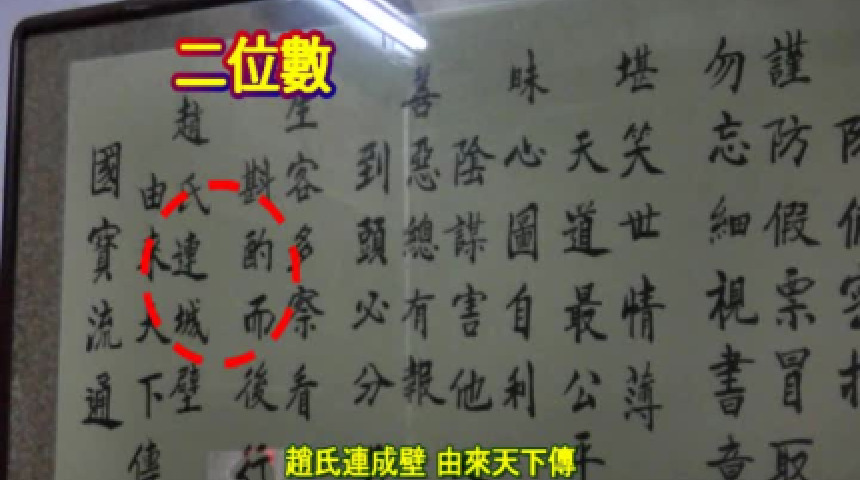 二位數
謹防假票冒取
勿忘細視書章
堪笑世情薄
天道最公平
昧心圖自利
陰謀害他
善惡總有報
到頭必分
生客多察看
斟酌而後行
趙氏連城壁
由來天下傳
國寶流通
趙氏連成壁 由來天下傳